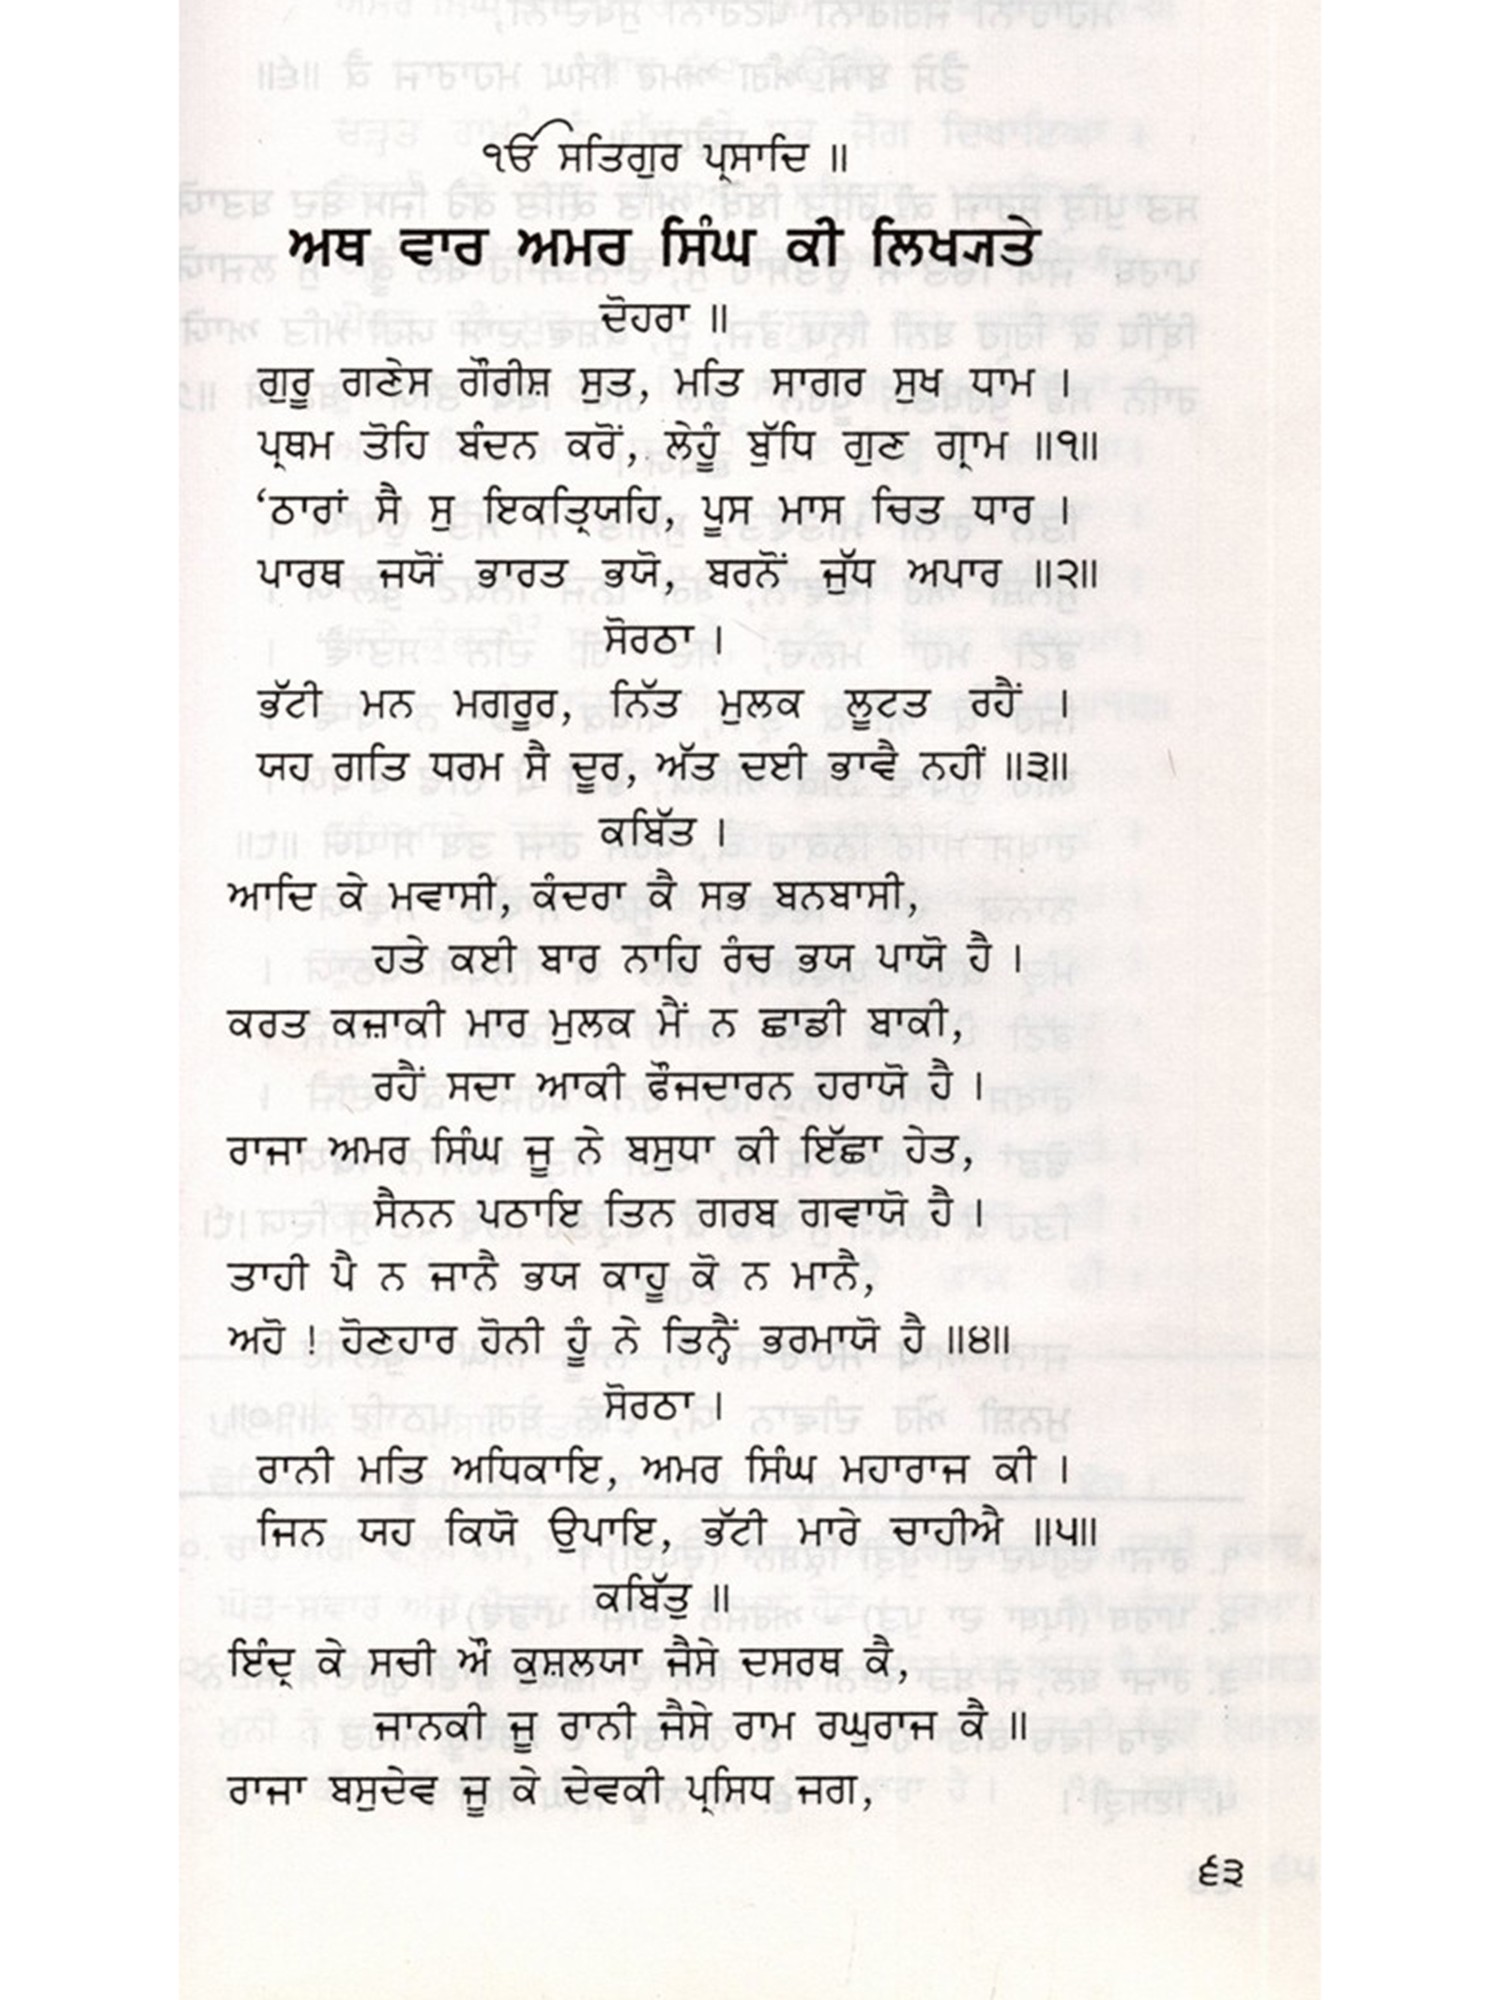 ੴ ਸਤਿਗੁਰ ਪ੍ਰਸਾਦਿ ॥
ਅਥ ਵਾਰ ਅਮਰ ਸਿੰਘ ਕੀ ਲਿਖ੍ਯਤੇ
ਦੋਹਰਾ ॥
ਗੁਰੂ ਗਣੇਸ ਗੌਰੀਸ਼ ਸੁਤ, ਮਤਿ ਸਾਗਰ ਸੁਖ ਧਾਮ ।
ਪ੍ਰਥਮ ਤੋਹਿ ਬੰਦਨ ਕਰੋਂ, ਲੇਹੂੰ ਬੁੱਧਿ ਗੁਣ ਗ੍ਰਾਮ ॥੧॥
‘ਠਾਰਾਂ ਸੈ ਸੁ ਇਕਤ੍ਰਿਯਹਿ, ਪੂਸ ਮਾਸ ਚਿਤ ਧਾਰ ।
ਪਾਰਥ ਜਯੋਂ ਭਾਰਤ ਭਯੋ, ਬਰਨੋਂ ਜੁੱਧ ਅਪਾਰ ॥੨॥
ਸੋਰਠਾ ।
ਭੱਟੀ ਮਨ ਮਗਰੂਰ, ਨਿੱਤ ਮੁਲਕ ਲੂਟਤ ਰਹੈਂ ।
ਯਹ ਗਤਿ ਧਰਮ ਸੈ ਦੂਰ, ਅੱਤ ਦਈ ਭਾਵੈ ਨਹੀਂ ॥੩॥
ਕਬਿੱਤ ।
ਆਦਿ ਕੇ ਮਵਾਸੀ, ਕੰਦਰਾ ਕੈ ਸਭ ਬਨਬਾਸੀ,
ਹਤੇ ਕਈ ਬਾਰ ਨਾਹਿ ਰੰਚ ਭਯ ਪਾਯੋ ਹੈ ।
ਕਰਤ ਕਜ਼ਾਕੀ ਮਾਰ ਮੁਲਕ ਮੈਂ ਨ ਛਾਡੀ ਬਾਕੀ,
ਰਹੈਂ ਸਦਾ ਆਕੀ ਫੌਜਦਾਰਨ ਹਰਾਯੋ ਹੈ ।
ਰਾਜਾ ਅਮਰ ਸਿੰਘ ਜੂ ਨੇ ਬਸੁਧਾ ਕੀ ਇੱਛਾ ਹੇਤ,
ਸੈਨਨ ਪਠਾਇ ਤਿਨ ਗਰਬ ਗਵਾਯੋ ਹੈ ।
ਤਾਹੀ ਪੈ ਨ ਜਾਨੈ ਭਯ ਕਾਹੂ ਕੋ ਨ ਮਾਨੈ,
ਅਹੋ ! ਹੋਣਹਾਰ ਹੋਨੀ ਹੂੰ ਨੇ ਤਿਨ੍ਹੈਂ ਭਰਮਾਯੋ ਹੈ ॥੪॥
ਸੋਰਠਾ ।
ਰਾਨੀ ਮਤਿ ਅਧਿਕਾਇ, ਅਮਰ ਸਿੰਘ ਮਹਾਰਾਜ ਕੀ ।
ਜਿਨ ਯਹ ਕਿਯੋ ਉਪਾਇ, ਭੱਟੀ ਮਾਰੇ ਚਾਹੀਐ ॥੫॥
ਕਬਿੱਤੁ ॥
ਇੰਦ੍ਰ ਕੇ ਸਚੀ ਔ ਕੁਸ਼ਲਯਾ ਜੈਸੇ ਦਸਰਥ ਕੈ,
ਜਾਨਕੀ ਜੂ ਰਾਨੀ ਜੈਸੇ ਰਾਮ ਰਘੁਰਾਜ ਕੈ ॥
ਰਾਜਾ ਬਸੁਦੇਵ ਜੂ ਕੇ ਦੇਵਕੀ ਪ੍ਰਸਿਧ ਜਗ,
੬੩